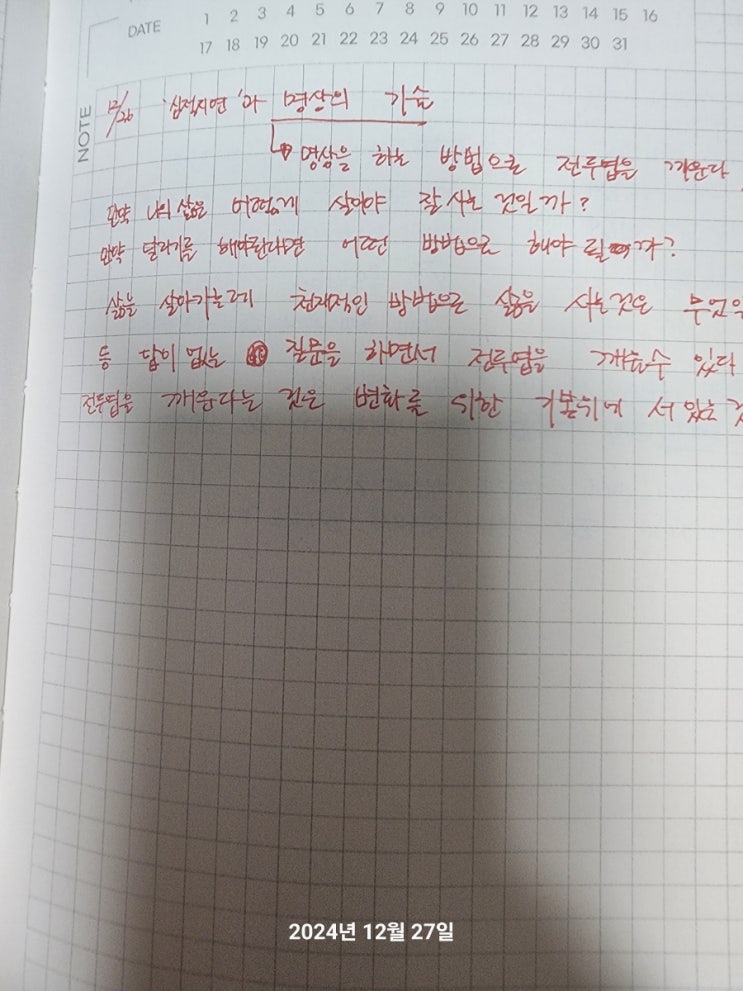 DATE
1 2 3 4 5 6 7 8 9 10 11 12 13 14 15 16
17 18 19 20 21 22 23 24 25 26 27 28 29 30 31
NOTE
12/26 '심적지연'과 명상의 기술
명상을 하는 방법으로 전두엽을 깨운다
만약 나의 삶을 어떻게 살아야 잘 사는 것일까?
만약 달리기를 해야된다면 어떤 방법으로 해야 될까?
삶을 살아가는데 천재적인 방법으로 삶을 사는것은 무엇을
등 답이 없는 질문을 하면서 전두엽을 깨울수 있다
전두엽을 깨운다는 것은 변화를 위한 기본위에 서 있는
2024년 12월 27일